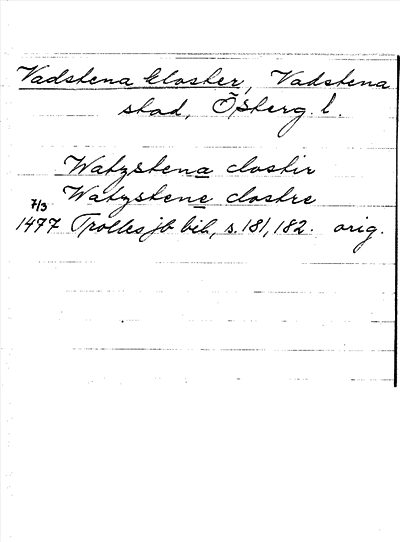 Vadstena kloster, Vadstena
stad, Östberg. l.
Watzstena clostir
Watzstene clostre
7/3
1477 Trolles jb bil, s. 181, 182. orig.